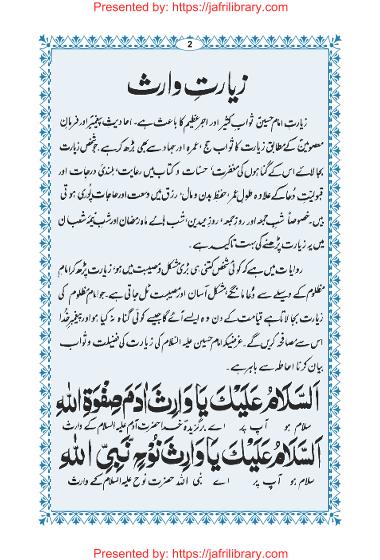 Presented by: https://jafrilibrary.com
2
زیارتِ وارث
زیارتِ امام حسینؑ ثوابِ کثیر اور اجرِ عظیم کا باعث ہے۔ احادیثِ پیغمبرؐ اور فرمانِ
معصومینؑ کے مطابق زیارت کا ثواب حج، عمرہ اور جہاد سے بھی بڑھ کر ہے۔ جو شخص زیارت
بجا لائے اس کے گناہوں کی مغفرت، حسنات و کتاب میں رعایت، بلندیٔ درجات اور
قبولیتِ دُعا کے علاوہ طولِ عمر، حفظِ بدن و مال، رزق میں وسعت اور حاجات پُوری ہوتی
ہیں۔ خصوصاً شبِ جمعہ اور روزِ جمعہ، روزِ عیدین، شب ہائے ماہِ رمضان اور شبِ نیمۂ شعبان
میں یہ زیارت پڑھنے کی بہت تاکید ہے۔
روایات میں ہے کہ کوئی شخص کتنی ہی بڑی مشکل و مصیبت میں ہو، زیارت پڑھ کر امامِ
مظلوم کے وسیلے سے دُعا مانگے، مشکل آسان اور مصیبت ٹل جاتی ہے۔ جو امامِ مظلوم کی
زیارت بجا لاتا ہے قیامت کے دن وہ ایسے آئے گا جیسے کوئی گناہ نہ کیا ہو اور پیغمبرِ خُدا
اس سے مصافحہ کریں گے۔ غرضیکہ امام حسین علیہ السلام کی زیارت کی فضیلت و ثواب
بیان کرنا احاطہ سے باہر ہے۔
اَلسَّلَامُ عَلَيْكَ يَا وَارِثَ اٰدَمَ صِفْوَةِ اللهِ
سلام ہو آپ پر اے برگزیدۂ خدا حضرت آدم علیہ السلام کے وارث
اَلسَّلَامُ عَلَيْكَ يَا وَارِثَ نُوْحٍ نَبِيِّ اللهِ
سلام ہو آپ پر اے نبی اللہ حضرت نوح علیہ السلام کے وارث
Presented by: https://jafrilibrary.com